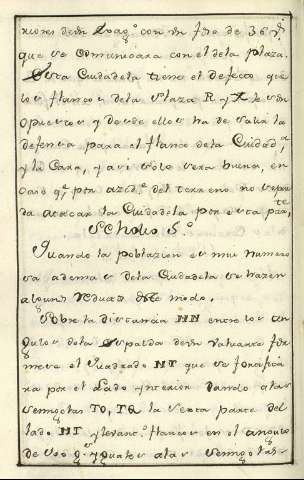 riores de un Poag.º con un foso de 36 p.s
que se comunicara con el de la plaza.
Esta Ciudadela tiene el defecto que
los flancos de la Plaza R, y X le son
opuestos y desde ellos ha de salir la
defensa para el flanco de la Ciudad.a
y la Cara, y asi solo sera buena, en
caso q.e por azid.e del terreno no se pue
da atacar la Ciudadela por esta parte.
Scholio 5.º
Quando la poblazion es mui numero
sa ademas de la Ciudadela se hazen
algunos reductos de este modo.
Sobre la distancia MN entre los an
gulos de la Espalda de un valuarte for
mese el Quadrado MT que se fortifica
ra por el Lado ynterior dando a las
semigolas TO, TQ la sexta parte del
lado MT y levant.n flancos en el angulo
de 100 g.s yguales a las semigolas